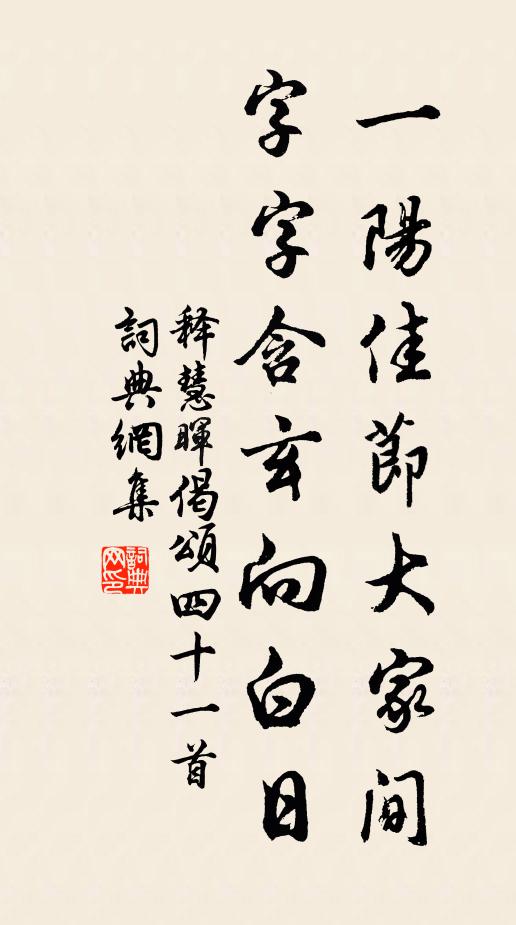 一陽佳節大家间
字字含玄向白日
释慧暉偈頌四十一首
詞典網集
詞典网印